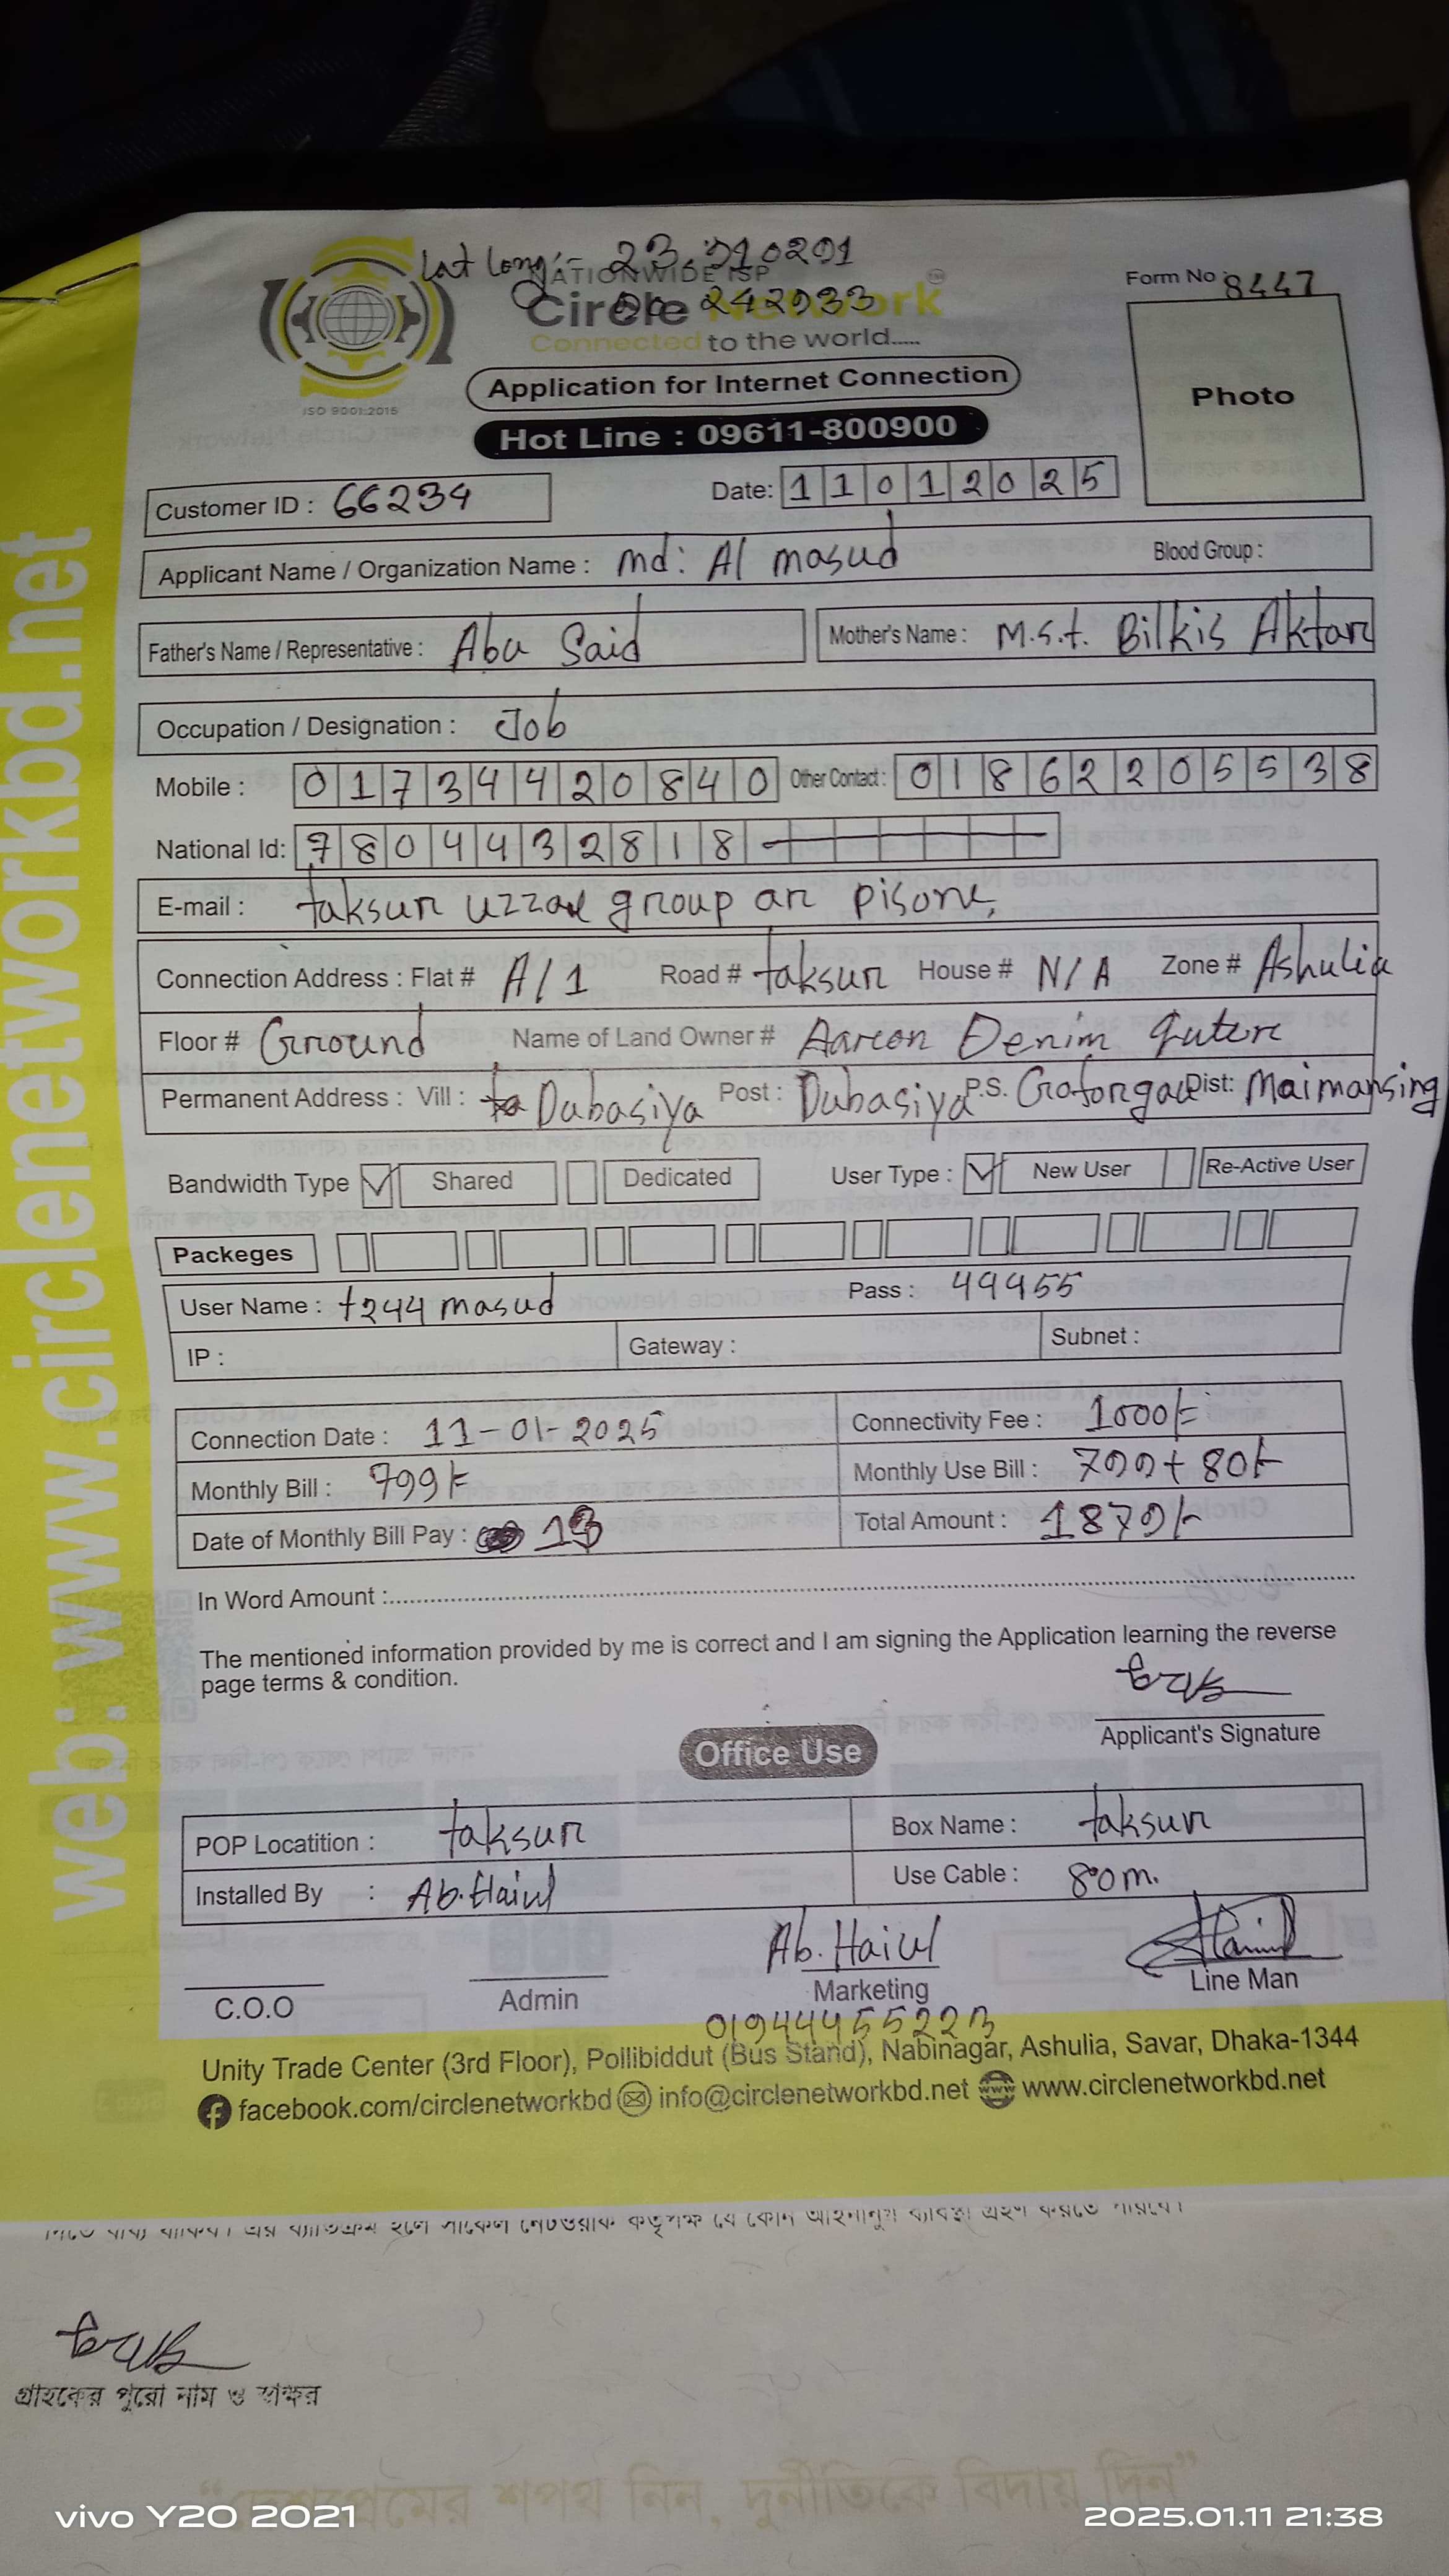 Lat Long:- 23.910291
NATIONWIDE ISP
90.242933
Circle Network
Connected to the world.....
ISO 9001:2015
Form No 8447
Photo
Application for Internet Connection
Hot Line : 09611-800900
Customer ID : 66234
Date: 11012025
Applicant Name / Organization Name : md: Al masud
Blood Group :
Father's Name / Representative : Abu Said
Mother's Name : M.s.t. Bilkis Aktar
Occupation / Designation : Job
Mobile : 01734420840 Other Contact : 01862205538
National Id: 7804432818
E-mail : taksur uzzal group ar pisone,
Connection Address : Flat # A/1 Road # taksur House # N/A Zone # Ashulia
Floor # Ground Name of Land Owner # Aaron Denim guterc
Permanent Address : Vill : Dubasiya Post : Dubasiya P.S. Gaforgao Dist: Maimansing
Bandwidth Type Shared Dedicated User Type : New User Re-Active User
Packeges
User Name : t244masud Pass : 44455
IP : Gateway : Subnet :
Connection Date : 11-01-2025 Connectivity Fee : 1000/=
Monthly Bill : 799/- Monthly Use Bill : 799+80/-
Date of Monthly Bill Pay : 13 Total Amount : 1879/-
In Word Amount :
The mentioned information provided by me is correct and I am signing the Application learning the reverse
page terms & condition.
Applicant's Signature
Office Use
POP Locatition : taksur Box Name : taksur
Installed By : Ab.Haiul Use Cable : 80m.
Ab. Haiul
C.O.O Admin Marketing Line Man
01944455223
Unity Trade Center (3rd Floor), Pollibiddut (Bus Stand), Nabinagar, Ashulia, Savar, Dhaka-1344
facebook.com/circlenetworkbd info@circlenetworkbd.net www.circlenetworkbd.net
web: www.circlenetworkbd.net
দিতে বাধ্য থাকিব। এর ব্যতিক্রম হলে সার্কেল নেটওয়ার্ক কর্তৃপক্ষ যে কোন আইনানুগ ব্যবস্থা গ্রহণ করতে পারবে।
গ্রাহকের পুরো নাম ও স্বাক্ষর
“দেশপ্রেমের শপথ নিন, দুর্নীতিকে বিদায় দিন”
vivo Y20 2021
2025.01.11 21:38